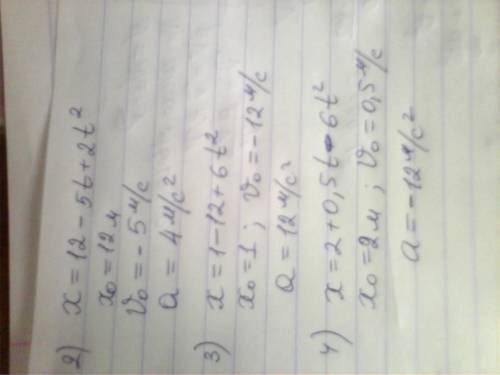 2) x = 12 - 5t + 2t²
x₀ = 12 м
v₀ = -5 м/с
a = 4 м/с²
3) x = 1 - 12 + 6t²
x₀ = 1 ; v₀ = -12 м/с
a = 12 м/с²
4) x = 2 + 0,5t - 6t²
x₀ = 2 м ; v₀ = 0,5 м/с
a = -12 м/с²